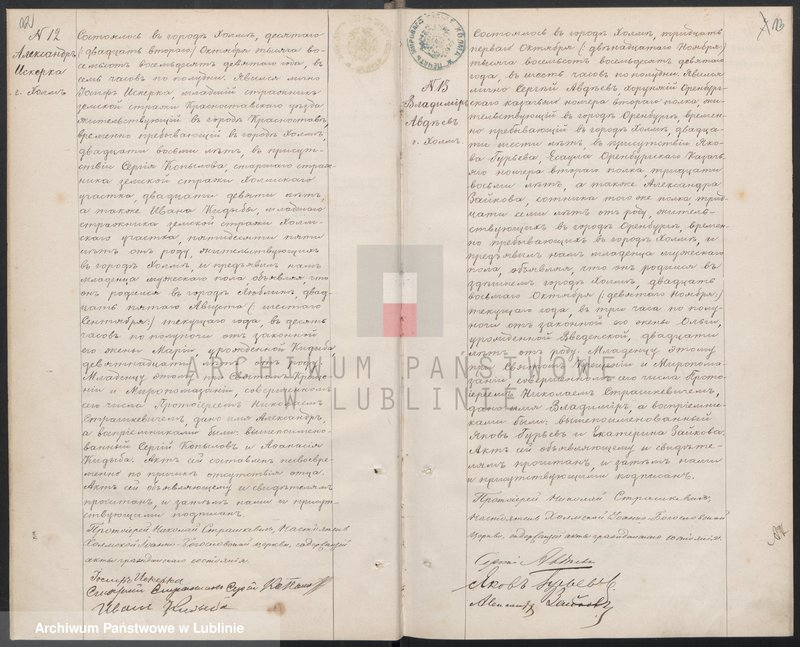 N 12
Александръ
Искерка
г. Холмъ
Состоялось въ городѣ Холмѣ, десятаго
(двадцать втораго) Октября тысяча во-
семьсотъ восемьдесятъ девятаго года, въ
семь часовъ по полудни. Явился лично
Іосифъ Искерка, младшій стражникъ
земской стражи Красноставскаго уѣзда
жительствующій въ городѣ Красноставѣ,
временно пребывающій въ городѣ Холмѣ,
двадцати восьми лѣтъ, въ присут-
ствіи Сергія Копылова, старшаго страж-
ника земской стражи Холмскаго
участка, двадцати девяти лѣтъ,
а также Ивана Кидыбы, младшаго
стражника земской стражи Холм-
скаго участка, пятидесяти пяти
лѣтъ отъ роду, жительствующихъ
въ городѣ Холмѣ, и предъявилъ намъ
младенца мужескаго пола объявляя, что
онъ родился въ городѣ Люблинѣ, двад-
цать пятаго Августа (шестаго
Сентября) текущаго года, въ десять
часовъ по полуночи отъ законной
его жены Маріи, урожденной Кидыба
девятнадцати лѣтъ отъ роду.
Младенцу этому при Святомъ Креще-
ніи и Миропомазаніи, совершенномъ
сего числа Протоіереемъ Николаемъ
Страшкевичемъ, дано имя Александръ,
а воспріемниками были: вышепоимено-
ванный Сергій Копыловъ и Аѳанасія
Кидыба. Актъ сей составленъ несвоевре-
менно по причинѣ отсутствія отца.
Актъ сей объявляющему и свидѣтелямъ
прочитанъ и затѣмъ нами и присут-
ствующими подписанъ.
Протоіерей Николай Страшкевичъ, Настоятель
Холмской Іоанно-Богословской церкви, содержащій
акты гражданскаго состоянія.
Іосифъ Искерка
Сергій
Иванъ Кидыба
N 13
Владиміръ
Авдѣевъ
г. Холмъ.
Состоялось въ городѣ Холмѣ, тридцать
перваго Октября (двѣнадцатаго Ноября)
тысяча восемьсотъ восемьдесятъ девятаго
года, въ шесть часовъ по полудни. Явился
лично Сергій Авдѣевъ, хорунжій Оренбург-
скаго казачьяго номера втораго полка, жи-
тельствующій въ городѣ Оренбургѣ, времен-
но пребывающій въ городѣ Холмѣ, двадца-
ти шести лѣтъ, въ присутствіи Яко-
ва Гурьева, Есаула Оренбургскаго Казачь-
яго номера втораго полка, тридцати
восьми лѣтъ, а также Александра
Зайкова, сотника того же полка трид-
цати семи лѣтъ отъ роду, житель-
ствующихъ въ городѣ Оренбургѣ, времен-
но пребывающихъ въ городѣ Холмѣ, и
предъявилъ намъ младенца мужескаго
пола, объявляя, что онъ родился въ
здѣшнемъ городѣ Холмѣ, двадцать
восьмаго Октября (девятаго Ноября)
текущаго года, въ три часа по полу-
ночи отъ законной его жены Ольги,
урожденной Введенской, двадцати
лѣтъ отъ роду. Младенцу этому
при Святомъ Крещеніи и Миропома-
заніи, совершенномъ сего числа Прото-
іереемъ Николаемъ Страшкевичемъ,
дано имя Владиміръ, а воспріемни-
ками были: вышепоименованный
Яковъ Гурьевъ и Екатерина Зайкова.
Актъ сей объявляющему и свидѣте-
лямъ прочитанъ, и затѣмъ нами
и присутствующими подписанъ.
Протоіерей Николай Страшкевичъ,
Настоятель Холмской Іоанно-Богословской
церкви, содержащій акты гражданскаго состоянія.
Сергій Авдѣевъ
Яковъ Гурьевъ
Александръ Зайковъ
ARCHIWUM PAŃSTWOWE
W LUBLINIE
Archiwum Państwowe w Lublinie